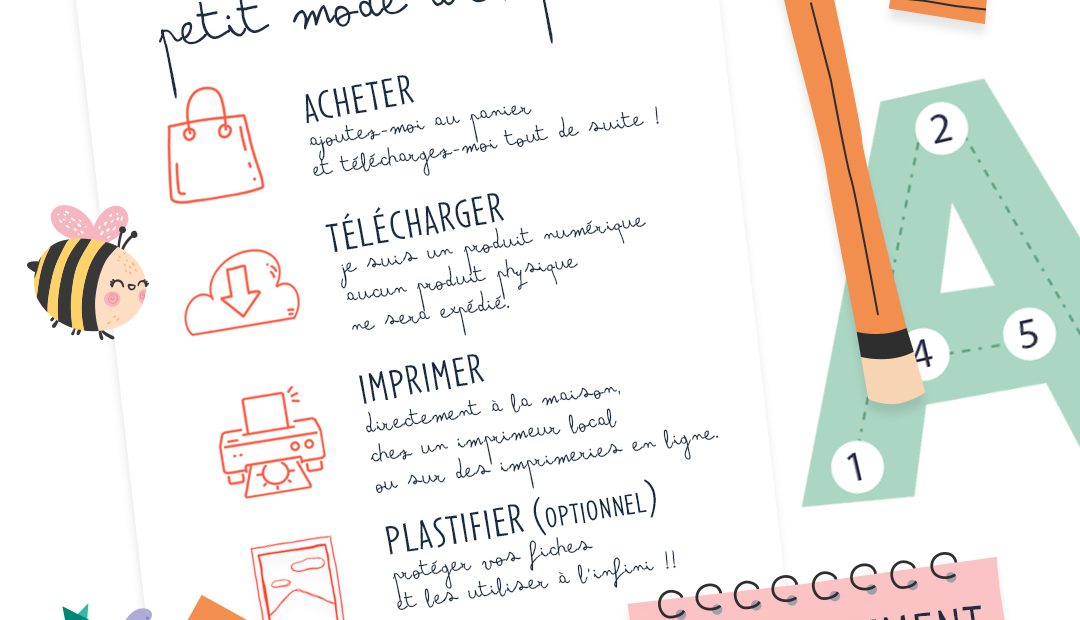 petit mode
ACHETER
ajoutez-moi au panier
et téléchargez-moi tout de suite !
TÉLÉCHARGER
je suis un produit numérique
aucun produit physique
ne sera expédié.
IMPRIMER
directement à la maison,
chez un imprimeur local
ou sur des imprimeries en ligne.
PLASTIFIER (OPTIONNEL)
protéger vos fiches
et les utiliser à l'infini !!
2
4
5
1